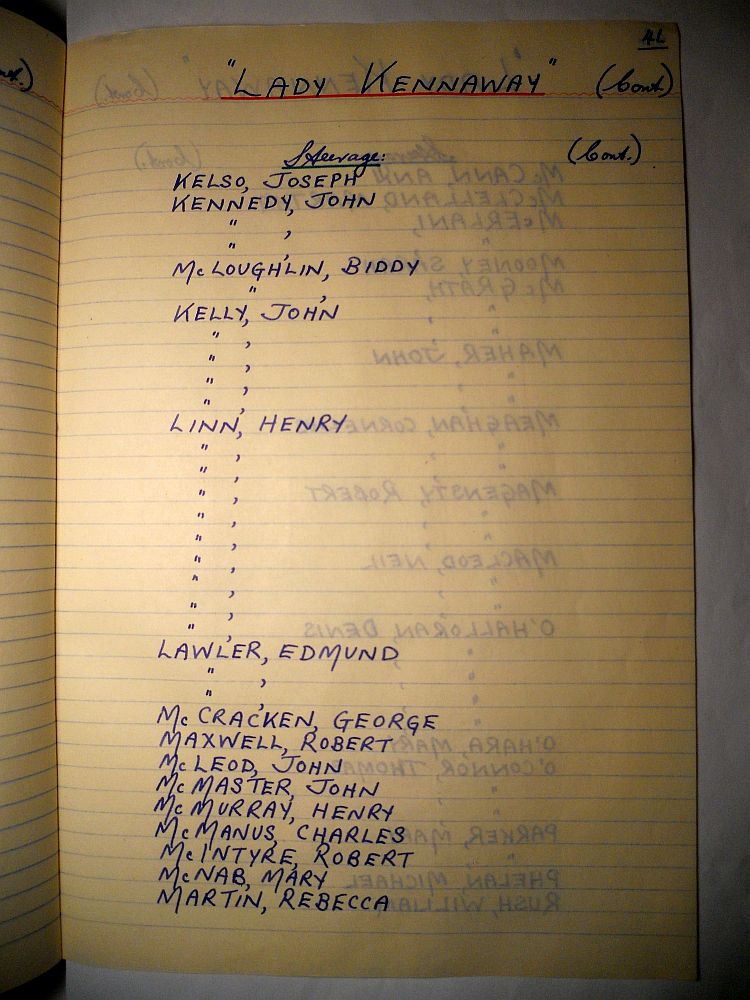 4L
"LADY KENNAWAY" (Cont.)
Steerage: (Cont.)
KELSO, JOSEPH
KENNEDY, JOHN
" ,
" ,
McLOUGHLIN, BIDDY
" ,
KELLY, JOHN
" ,
" ,
" ,
" ,
LINN, HENRY
" ,
" ,
" ,
" ,
" ,
" ,
" ,
" ,
" ,
LAWLER, EDMUND
" ,
" ,
McCRACKEN, GEORGE
MAXWELL, ROBERT
McLEOD, JOHN
McMASTER, JOHN
McMURRAY, HENRY
McMANUS, CHARLES
McINTYRE, ROBERT
McNAB, MARY
MARTIN, REBECCA